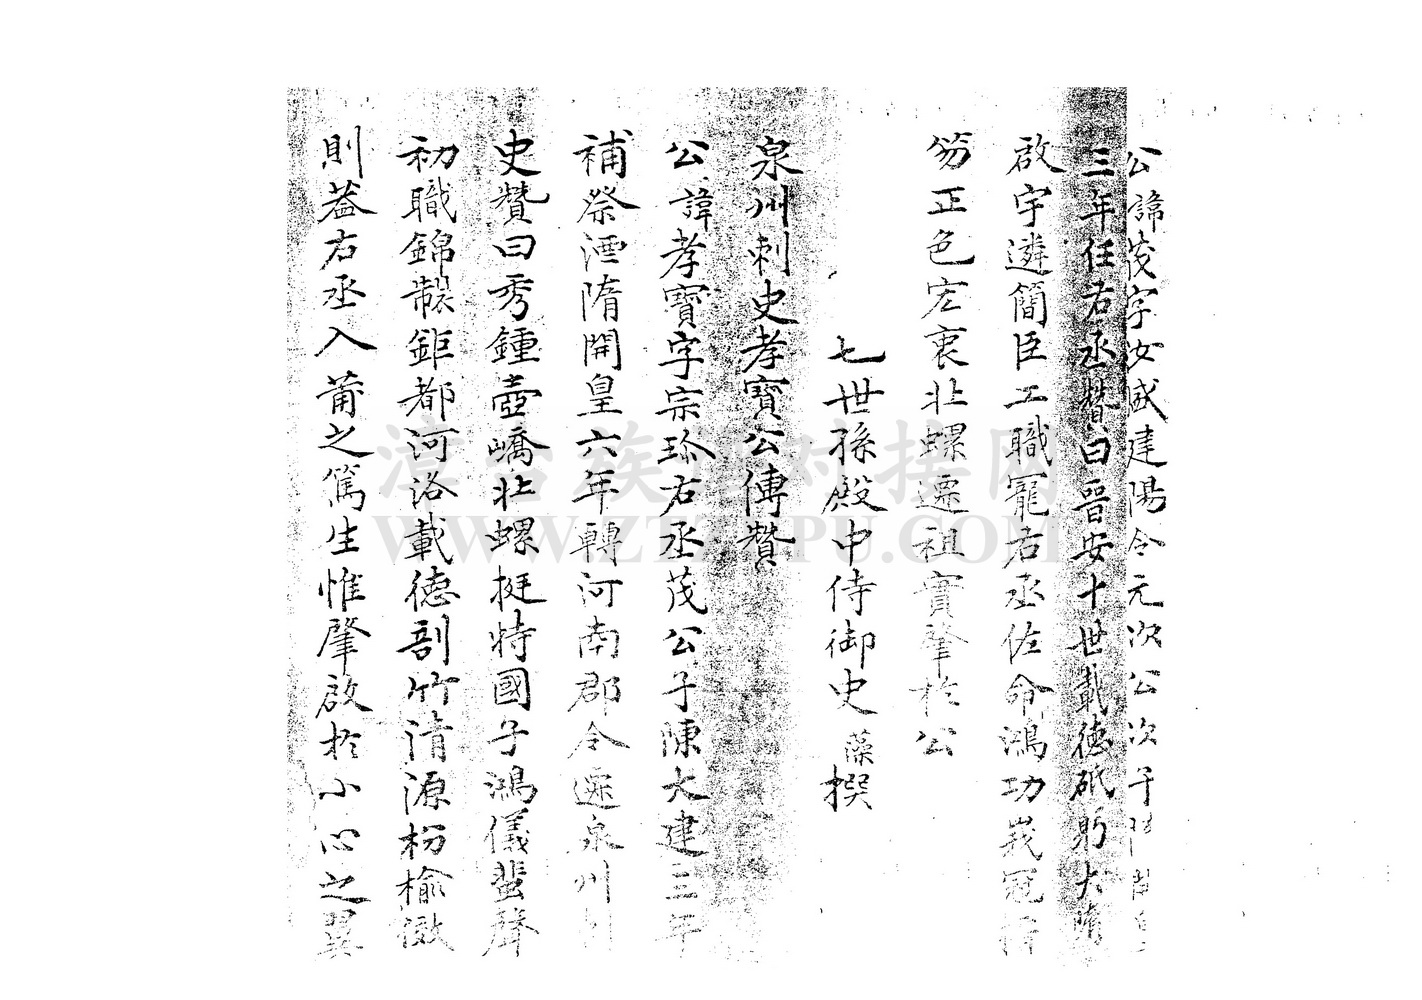 公諱茂字汝盛建陽令元次公次子時
三年任右丞贊曰晋安十世載德砥躬大隋
啟宇遴簡臣工職寵右丞佐命鴻功峩冠搢
笏正色宏衷北螺遷祖實肇於公
七世孫殿中侍御史藻撰
泉州刺史孝寶公傳贊
公諱孝寶字宗珎右丞茂公子陳大建三年
補祭酒隋開皇六年轉河南郡令遷泉州刺
史贊曰秀鍾壺嶠北螺挺特國子鴻儀蜚聲
初職錦製鉅都河洛載德剖竹清源枌榆徼
則蓋右丞入莆之篤生惟肇啟於小心之翼
漳台族谱对接网
WWW.ZTZUPU.COM